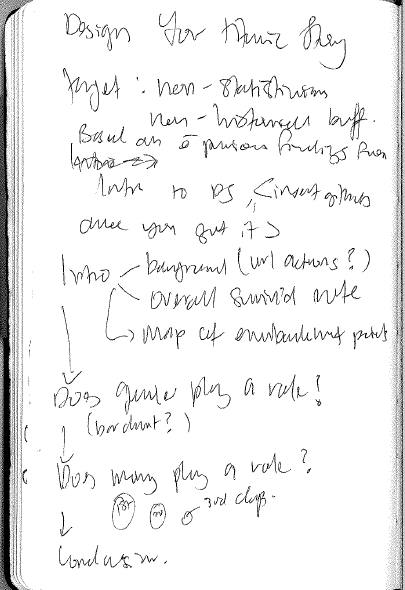 Design for Titanic Story
Target : non-statisticians
non-historical buff.
Based on previous findings from
Intro to DS, <insert github
once you get it>
Intro background (url actions?)
overall survival rate
Map of embarkment points
Does gender play a role?
(bar chart?)
Does money play a role?
1st 2nd 3rd class.
Conclusion.